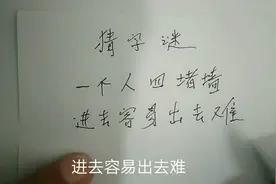 猜字谜
一个人四堵墙
进去容易出去难
进去容易出去难